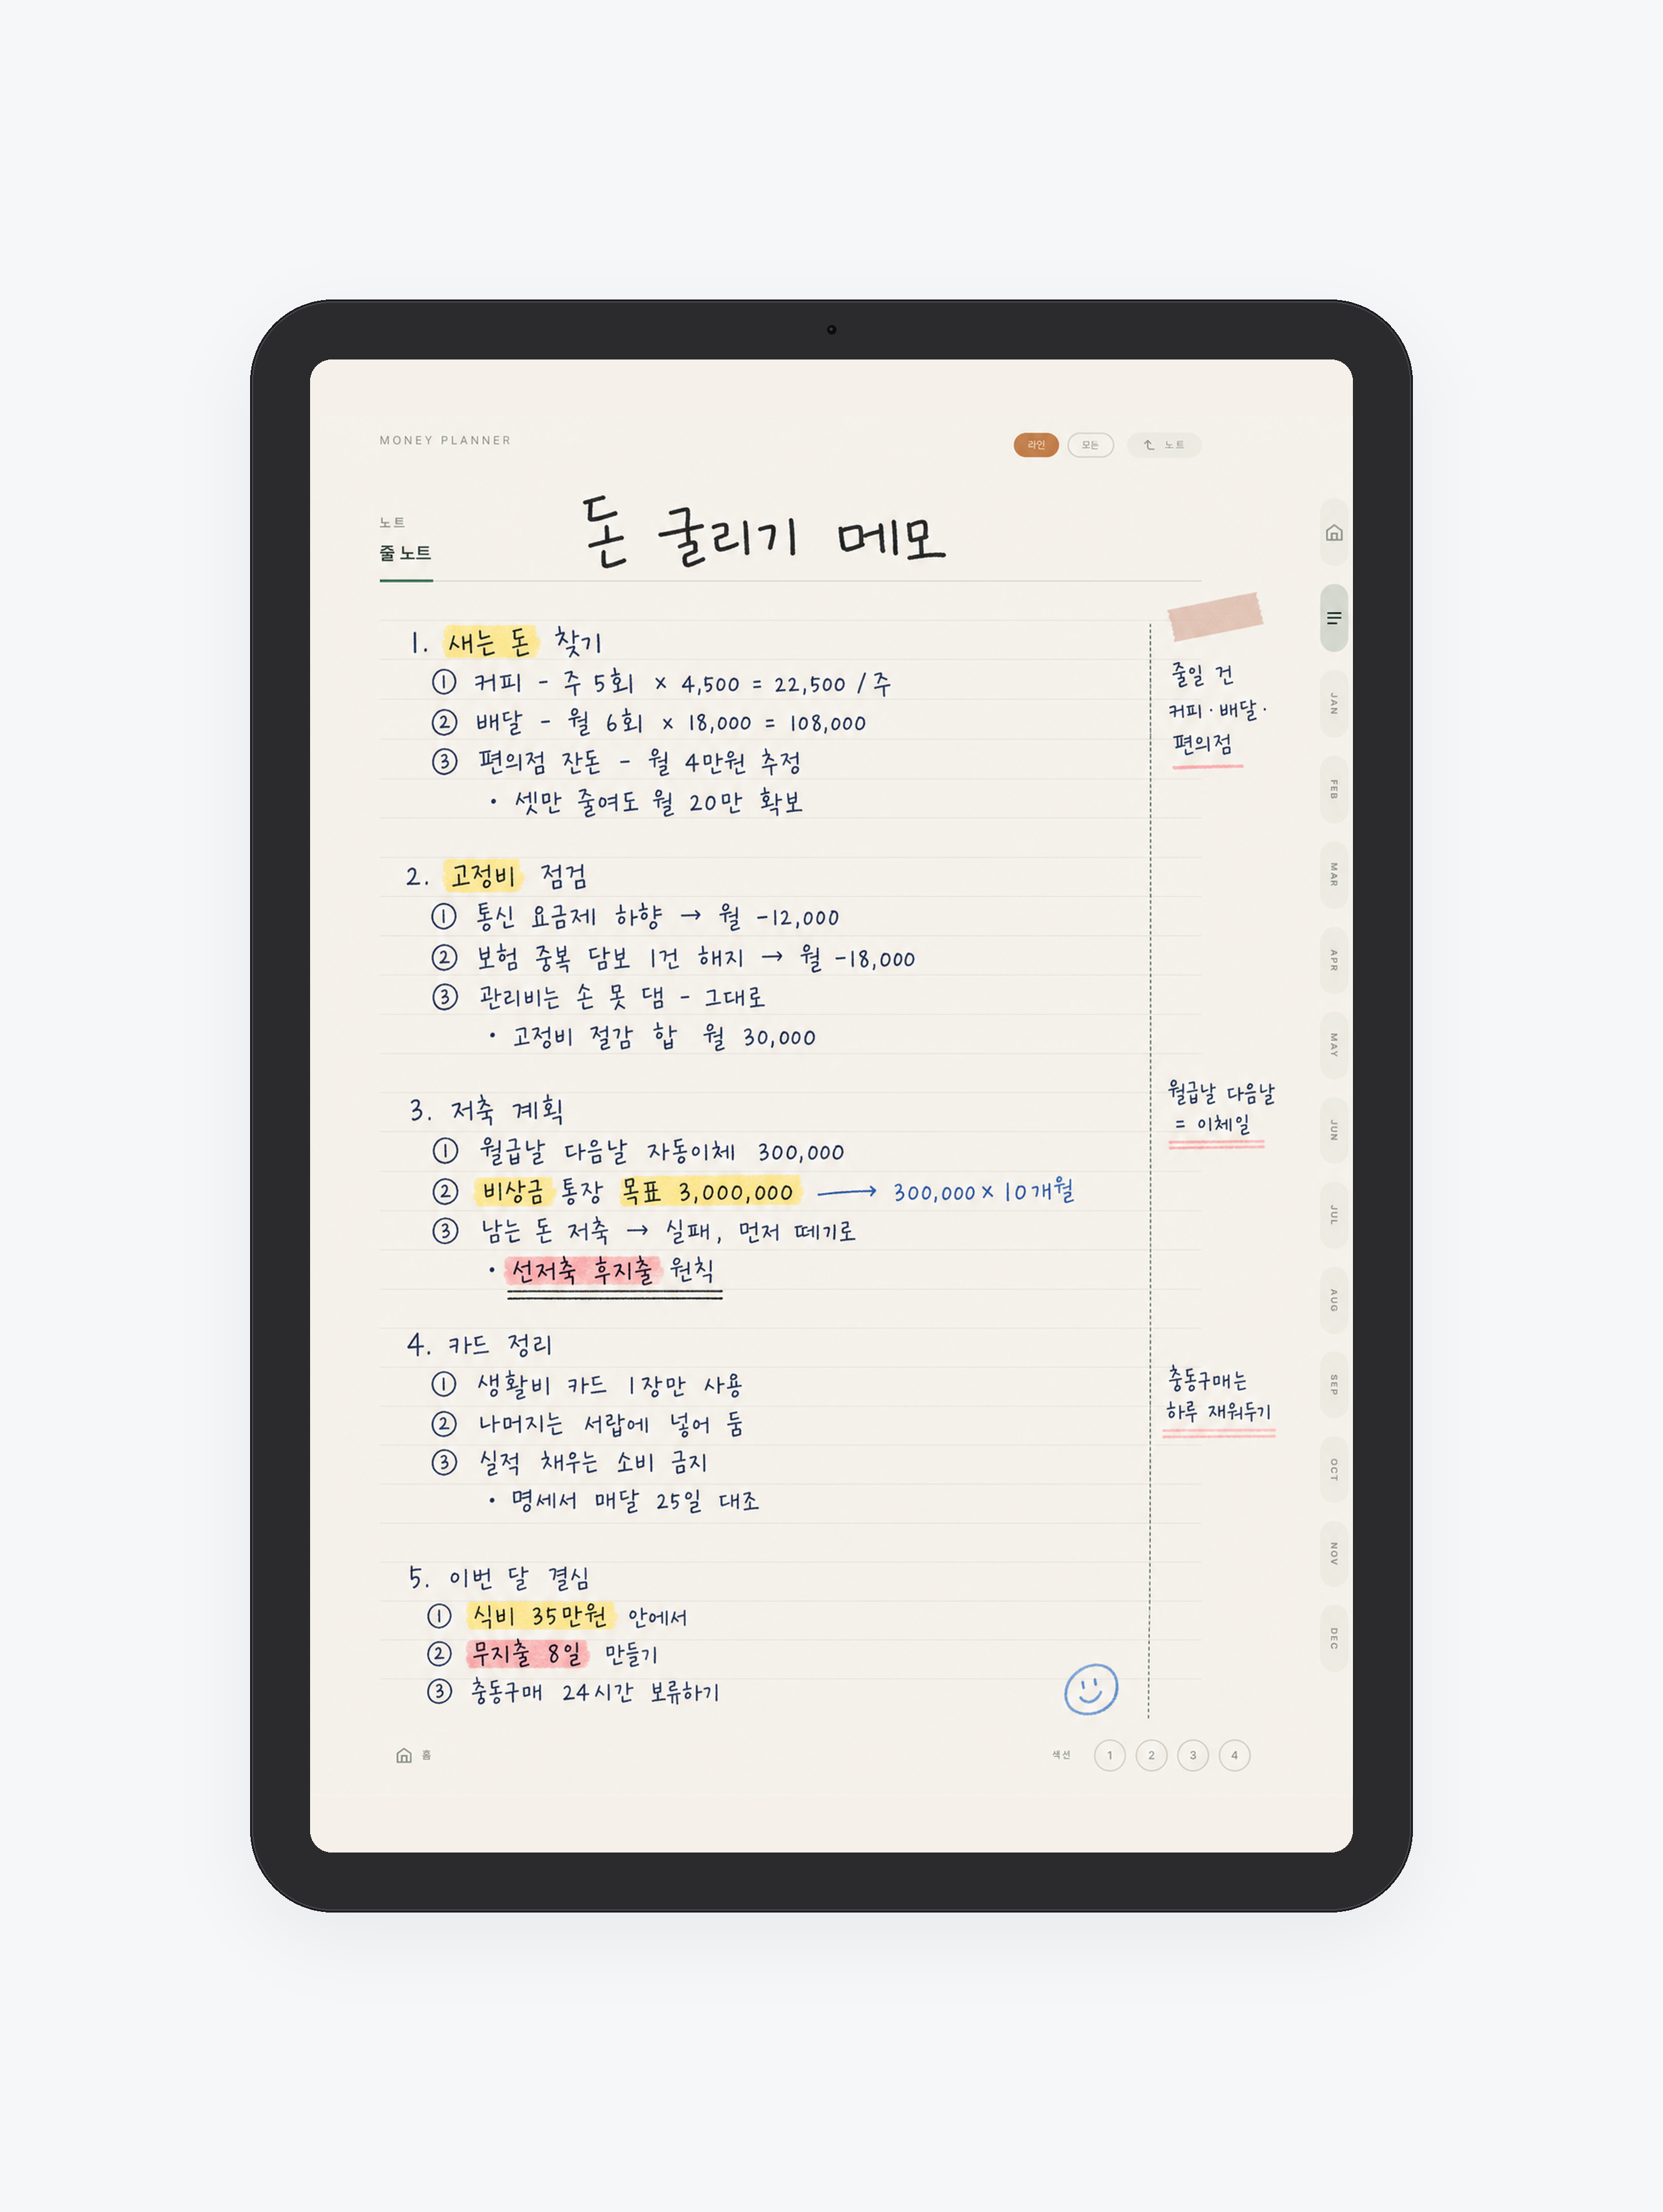 MONEY PLANNER
라인
모든
노트
노트
줄 노트
돈 굴리기 메모
1. 새는 돈 찾기
① 커피 - 주 5회 × 4,500 = 22,500 / 주
② 배달 - 월 6회 × 18,000 = 108,000
③ 편의점 잔돈 - 월 4만원 추정
• 셋만 줄여도 월 20만 확보
줄일 건
커피 · 배달 ·
편의점
2. 고정비 점검
① 통신 요금제 하향 → 월 -12,000
② 보험 중복 담보 1건 해지 → 월 -18,000
③ 관리비는 손 못 댐 - 그대로
• 고정비 절감 합 월 30,000
3. 저축 계획
① 월급날 다음날 자동이체 300,000
② 비상금 통장 목표 3,000,000 → 300,000 × 10개월
③ 남는 돈 저축 → 실패, 먼저 떼기로
• 선저축 후지출 원칙
월급날 다음날
= 이체일
4. 카드 정리
① 생활비 카드 1장만 사용
② 나머지는 서랍에 넣어 둠
③ 실적 채우는 소비 금지
• 명세서 매달 25일 대조
충동구매는
하루 재워두기
5. 이번 달 결심
① 식비 35만원 안에서
② 무지출 8일 만들기
③ 충동구매 24시간 보류하기
홈
섹션
1
2
3
4
JAN
FEB
MAR
APR
MAY
JUN
JUL
AUG
SEP
OCT
NOV
DEC